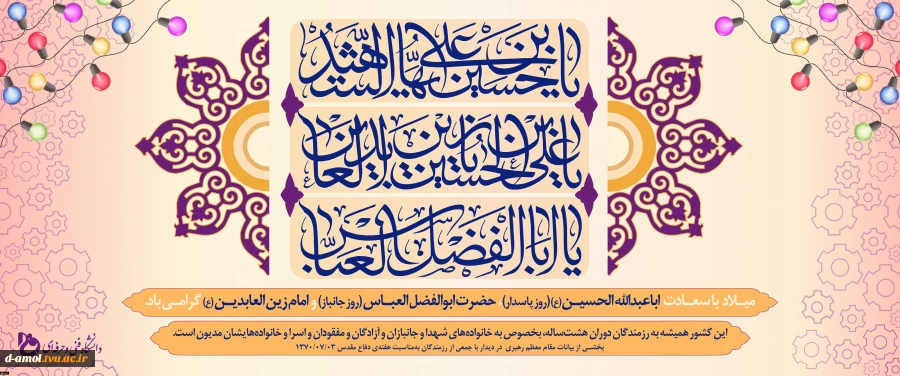 یا حسین بن علی ایها الشهید
یا علی بن الحسین یا زین العابدین
یا اباالفضل العباس
میلاد باسعادت اباعبدالله الحسین (ع) (روز پاسدار) حضرت ابوالفضل العباس (روز جانباز) و امام زین العابدین (ع) گرامی باد.
این کشور همیشه به رزمندگان دوران هشت‌ساله، بخصوص به خانواده‌های شهدا و جانبازان و آزادگان و مفقودان و اسرا و خانواده‌هایشان مدیون است.
بخشی از بیانات مقام معظم رهبری در دیدار با جمعی از رزمندگان به‌مناسبت هفته‌ی دفاع مقدس ۱۳۷۰/۰۷/۰۳
دانشگاه فنی و حرفه‌ای
d-amol.tvu.ac.ir